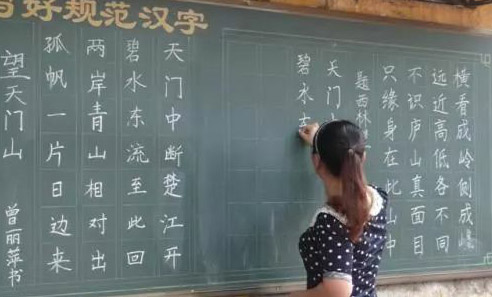 好规范汉字
横看成岭侧成峰
远近高低各不同
不识庐山真面目
只缘身在此山中
题西林
天门
碧水
天门中断楚江开
碧水东流至此回
两岸青山相对出
孤帆一片日边来
望天门山 曾丽萍书